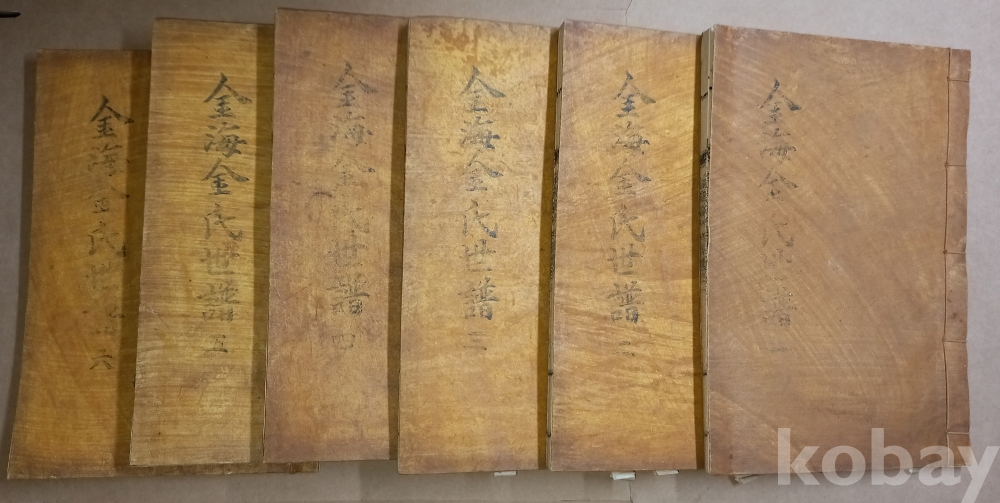 金海金氏世譜 一
金海金氏世譜 二
金海金氏世譜 三
金海金氏世譜 四
金海金氏世譜 五
金海金氏世譜 六
kobay